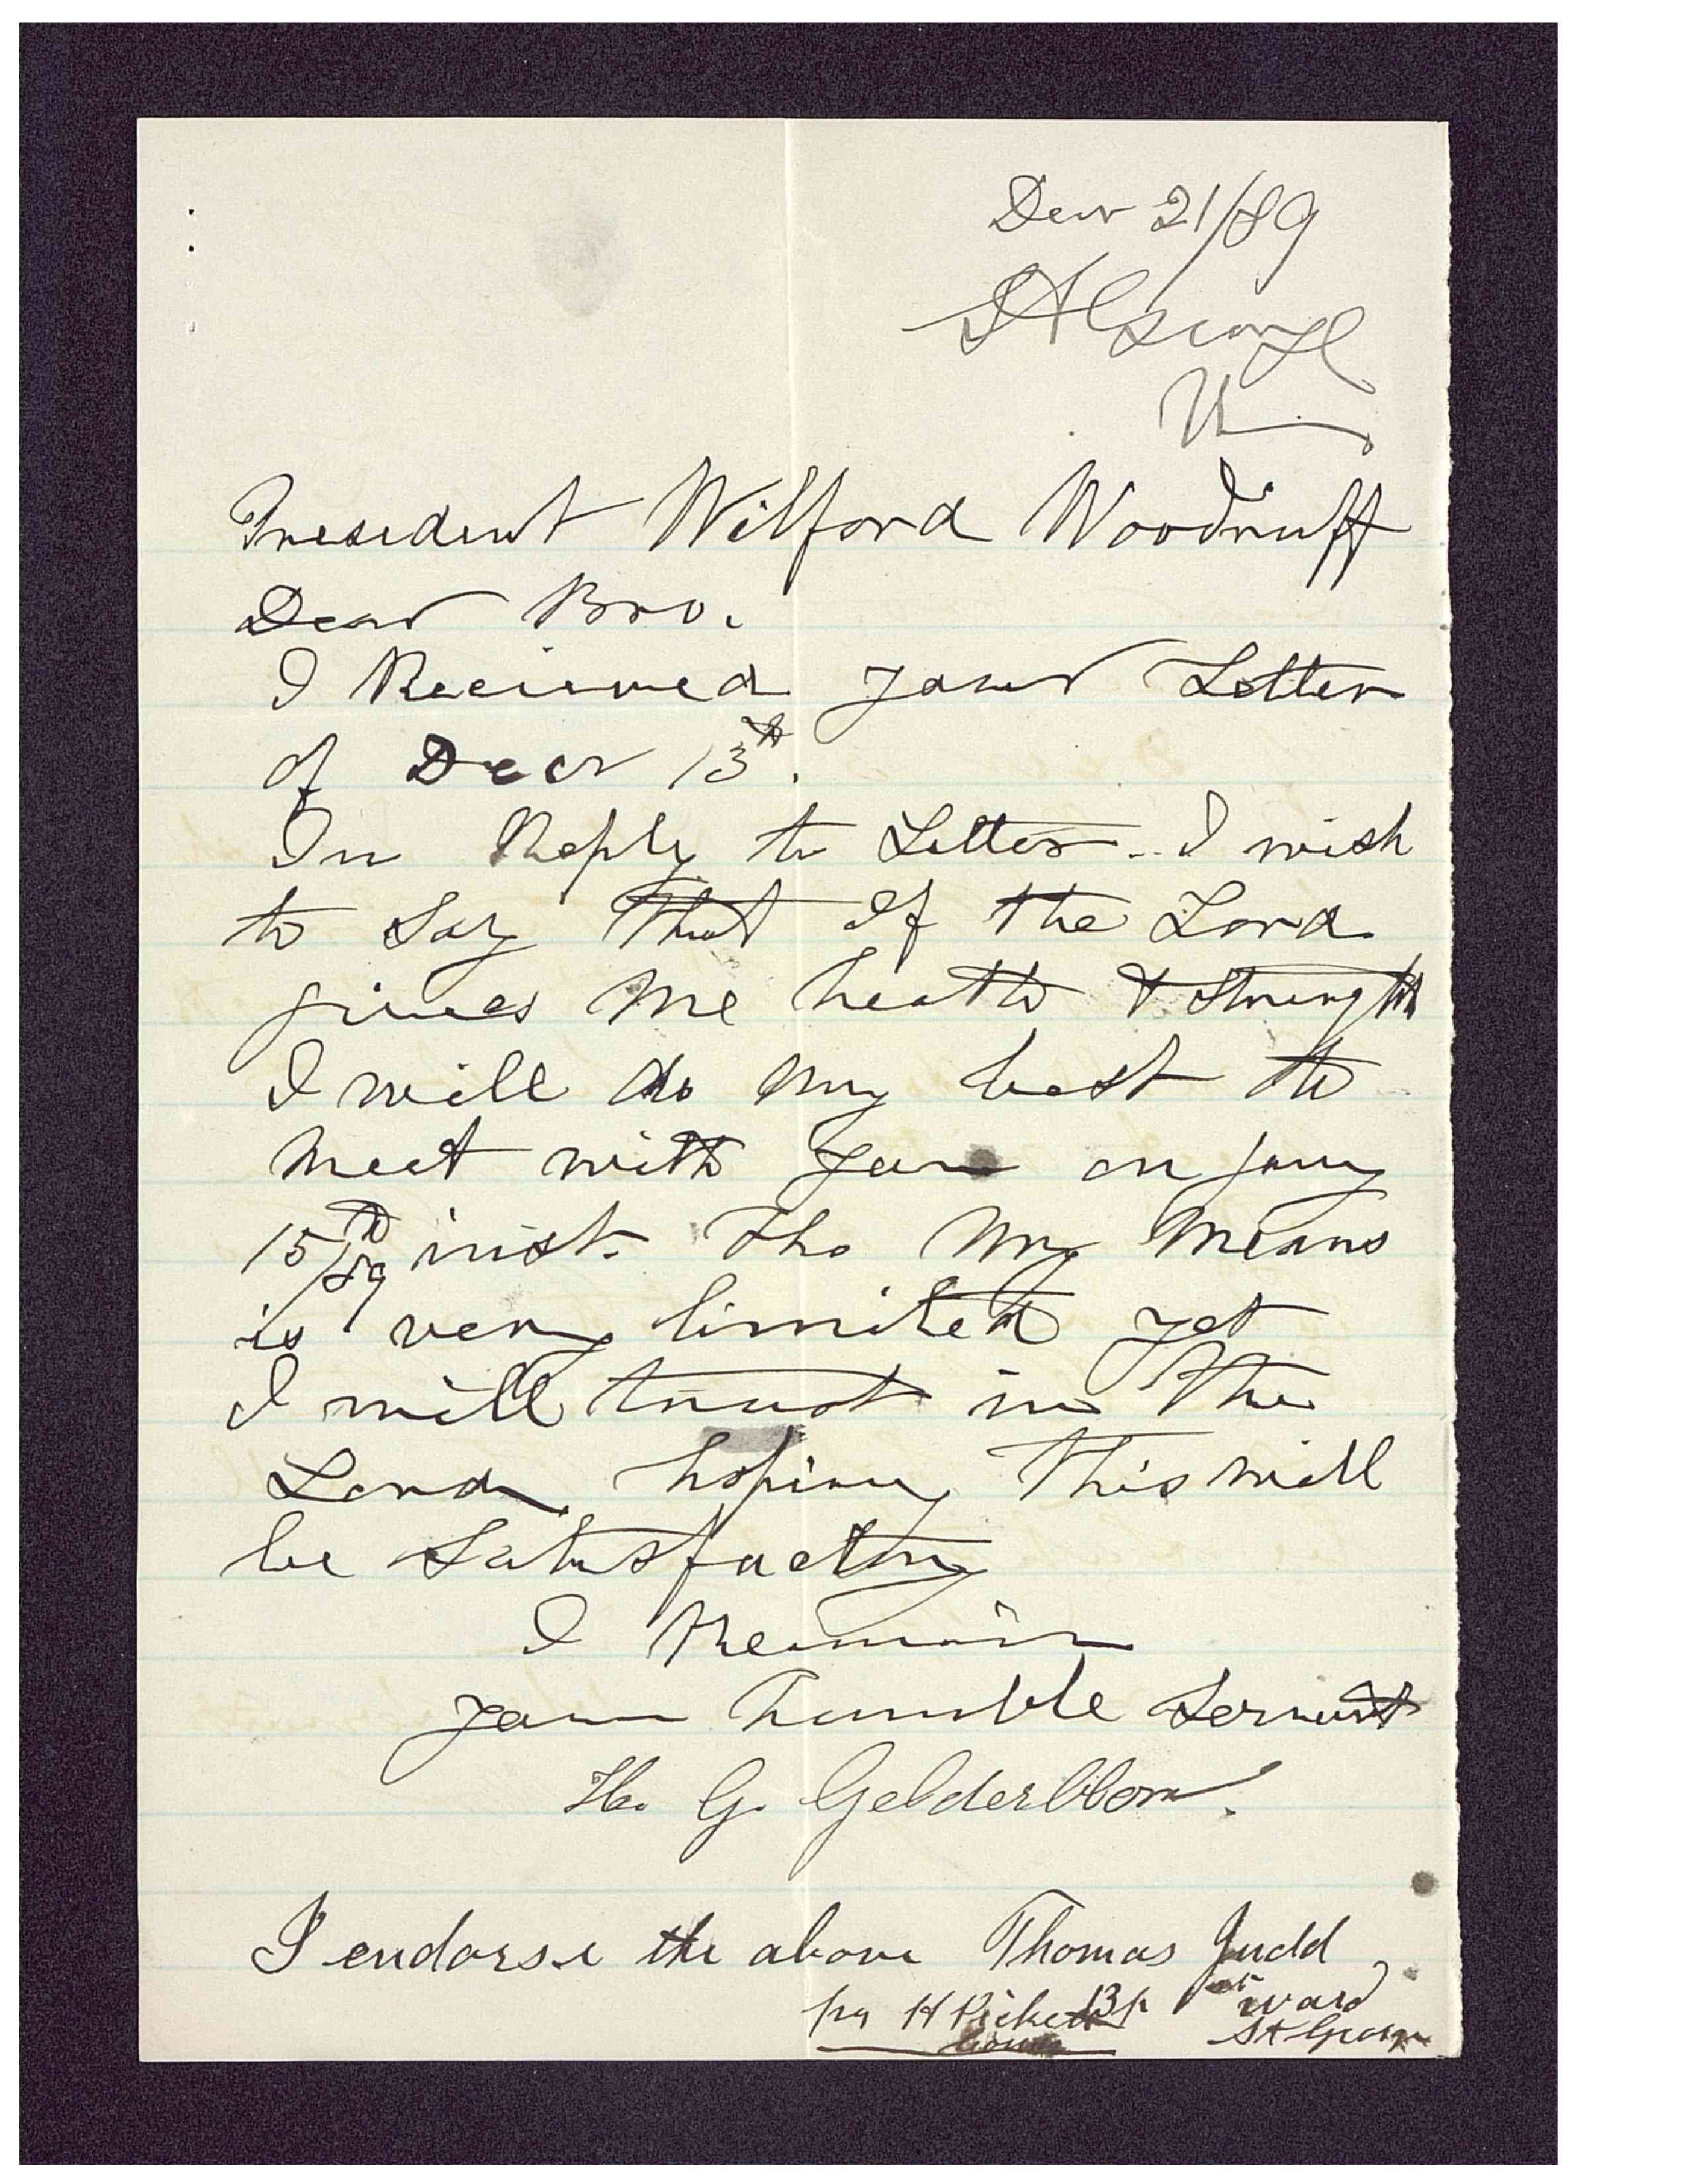 Decr 21/89
St George
U
President Wilford Woodruff
Dear Bro.
I Recieved your Letter
of Decr 13th.
In Reply to Letter. I wish
to Say That If the Lord
gives me heath & Strength
I will do my best to
meet with you on jany
15th/89 inst. tho my means
is very limited yet
I will trust in the
Lord hoping this will
be Satisfactory
I Remain
your humble Servant
H. G. Gelderbloom.
I endorse the above Thomas Judd
H Pickett Bp 1st ward
St George